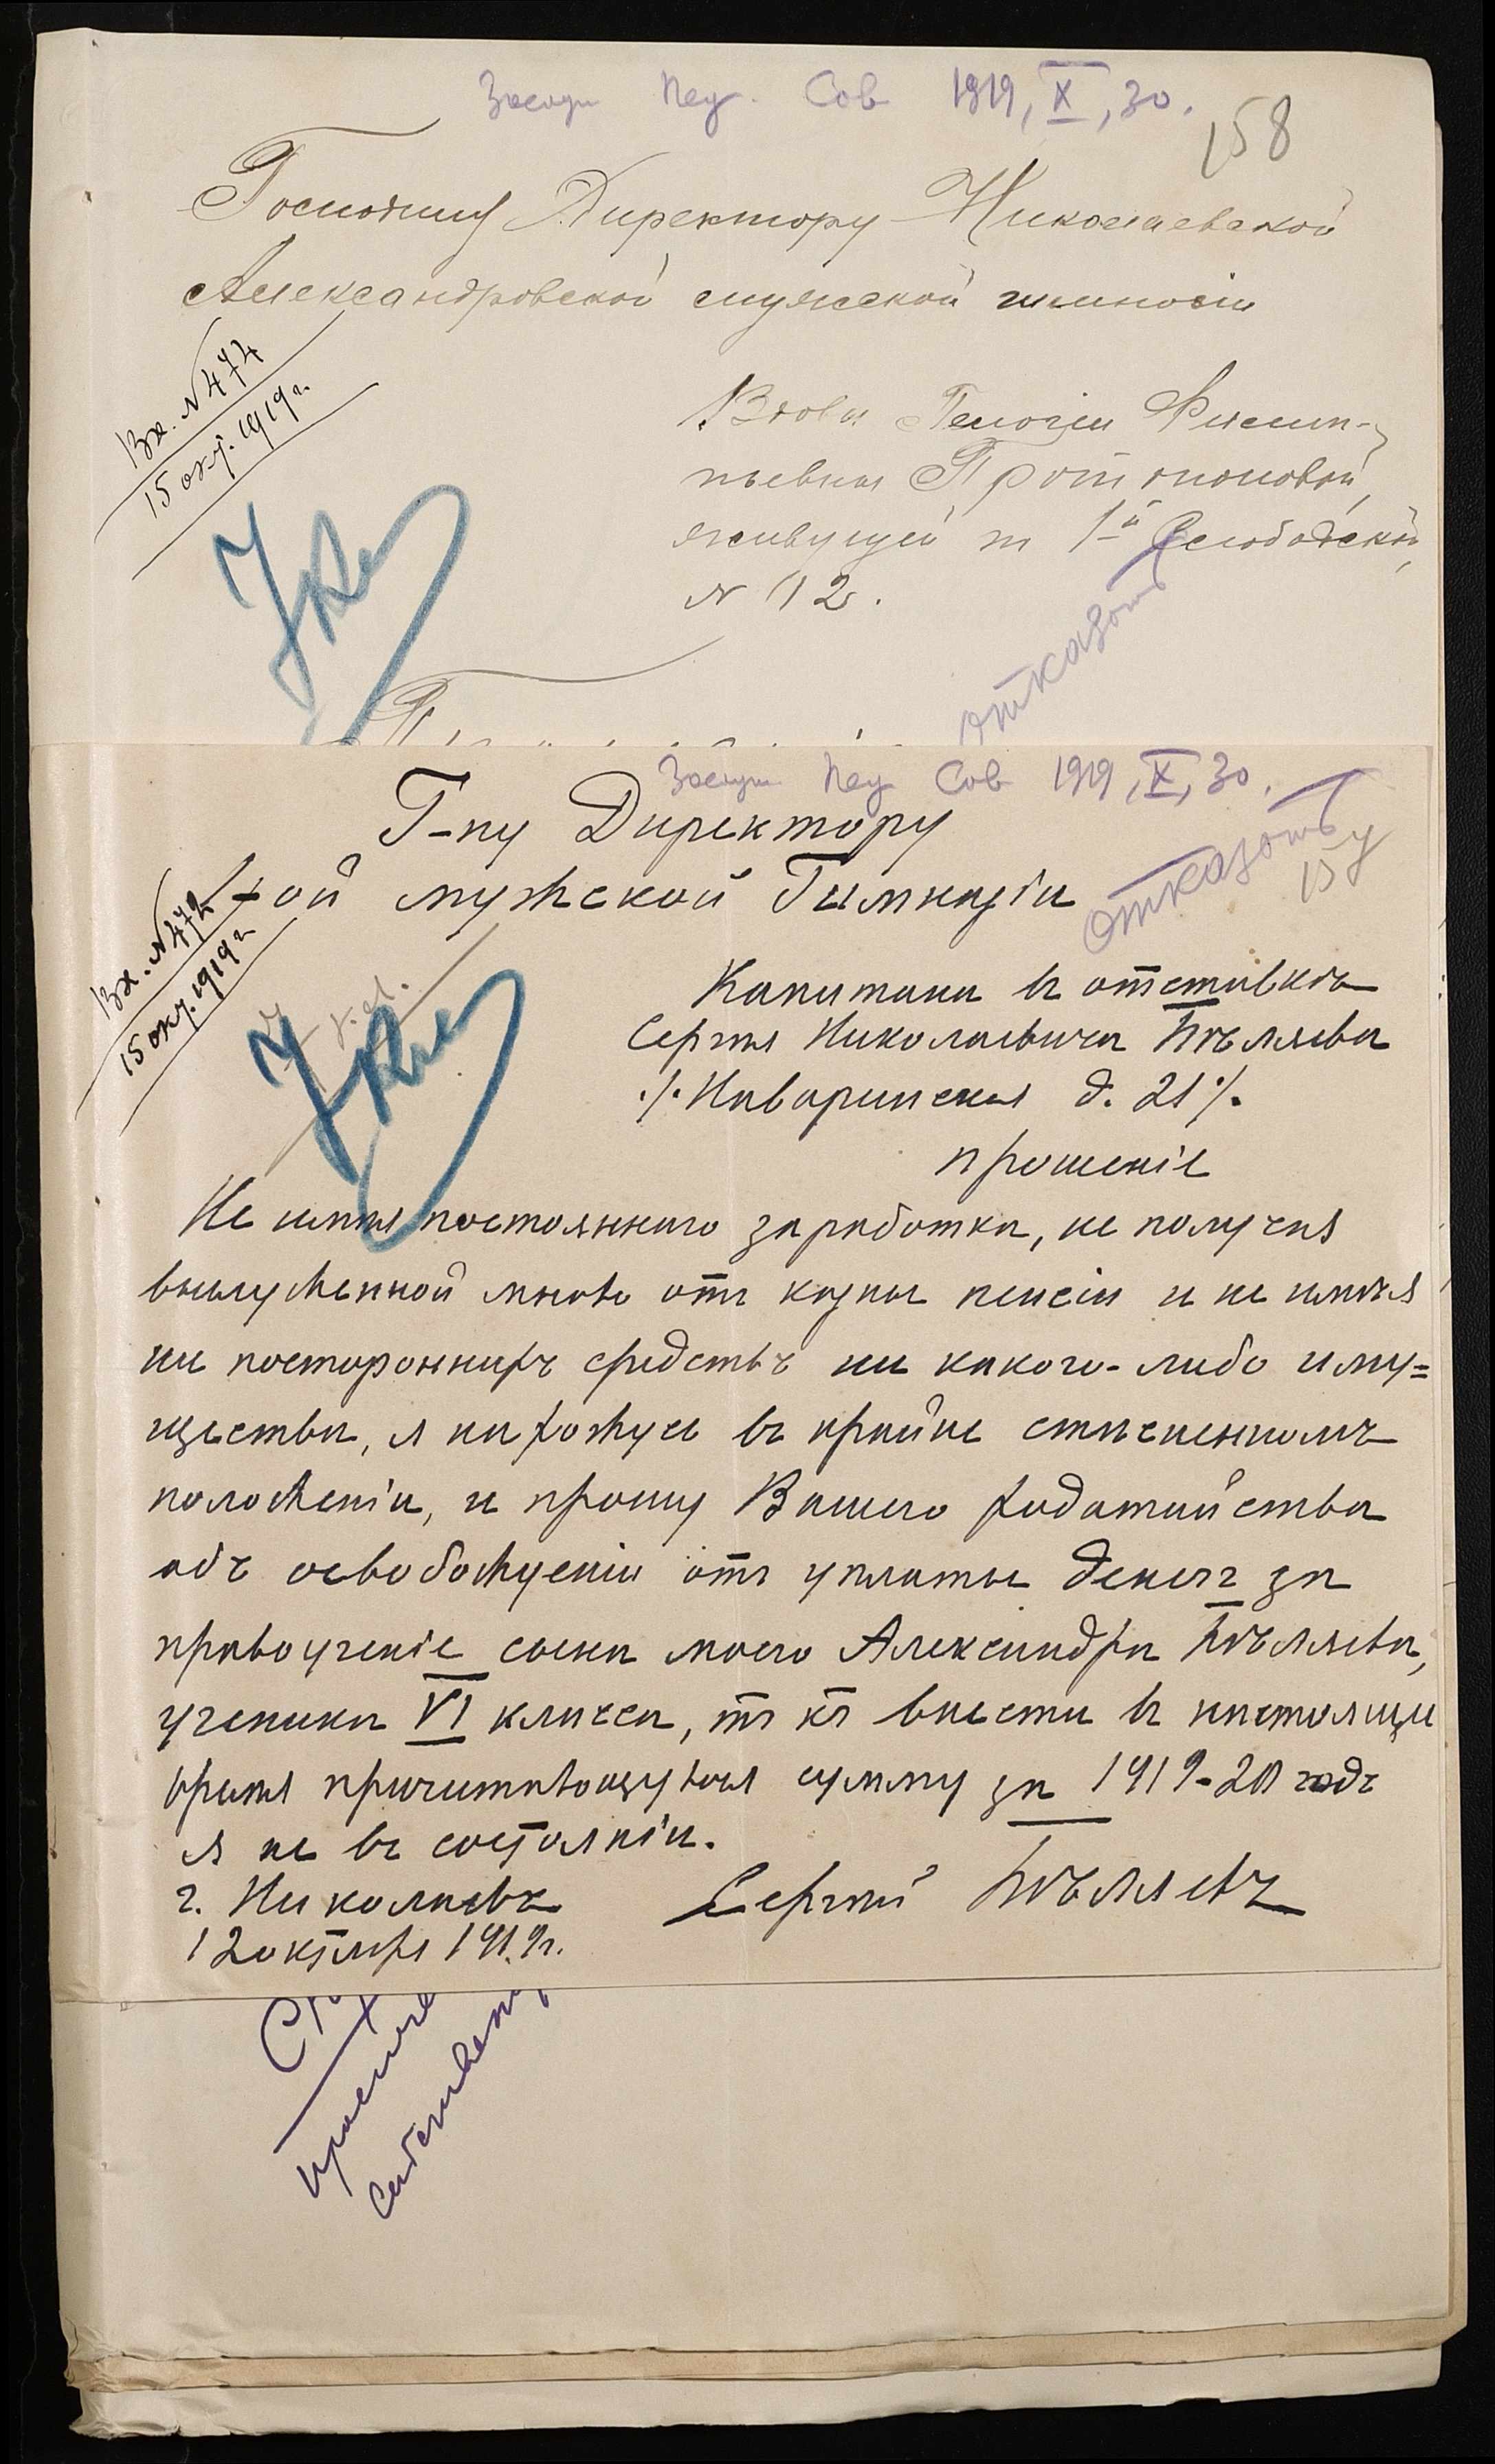 Засѣд Пед. Сов 1919, X, 30.
158
Господину Директору Николаевской
Александровской мужской гимназіи
Вх. №474
15 окт. 1919 г.
Вдовы Филип-
пьевны Протопоповой,
живущей 1й Слободской,
№ 12.
отказать
Засѣд Пед Сов 1919, X, 30.
Г-ну Директору
отказать
ой мужской Гимназіи
Вх. №472
15 окт. 1919 г
Капитана въ отставкѣ
Сергѣя Николаевича Бѣляева
./. Наваринская д. 21 /.
прошеніе
Не имѣя постояннаго заработка, не получая
выслуженной мною отъ казны пенсіи и не имѣя
ни постороннихъ средствъ ни какого-либо иму=
щества, я нахожусь въ крайне стѣсненномъ
положеніи, и прошу Вашего ходатайства
объ освобожденіи отъ уплаты денегъ за
правоученіе сына моего Александра Бѣляева,
ученика VI класса, тъ къ внести въ настоящее
время причитающуюся сумму за 1919-20 годъ
я не въ состояніи.
г. Николаевъ
Сергѣй Бѣляевъ
12 октября 1919 г.